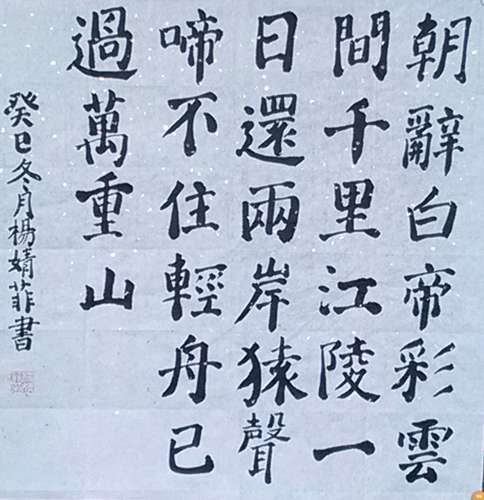 朝辭白帝彩雲
間千里江陵一
日還兩岸猿聲
啼不住輕舟已
過萬重山
癸巳冬月楊婧菲書